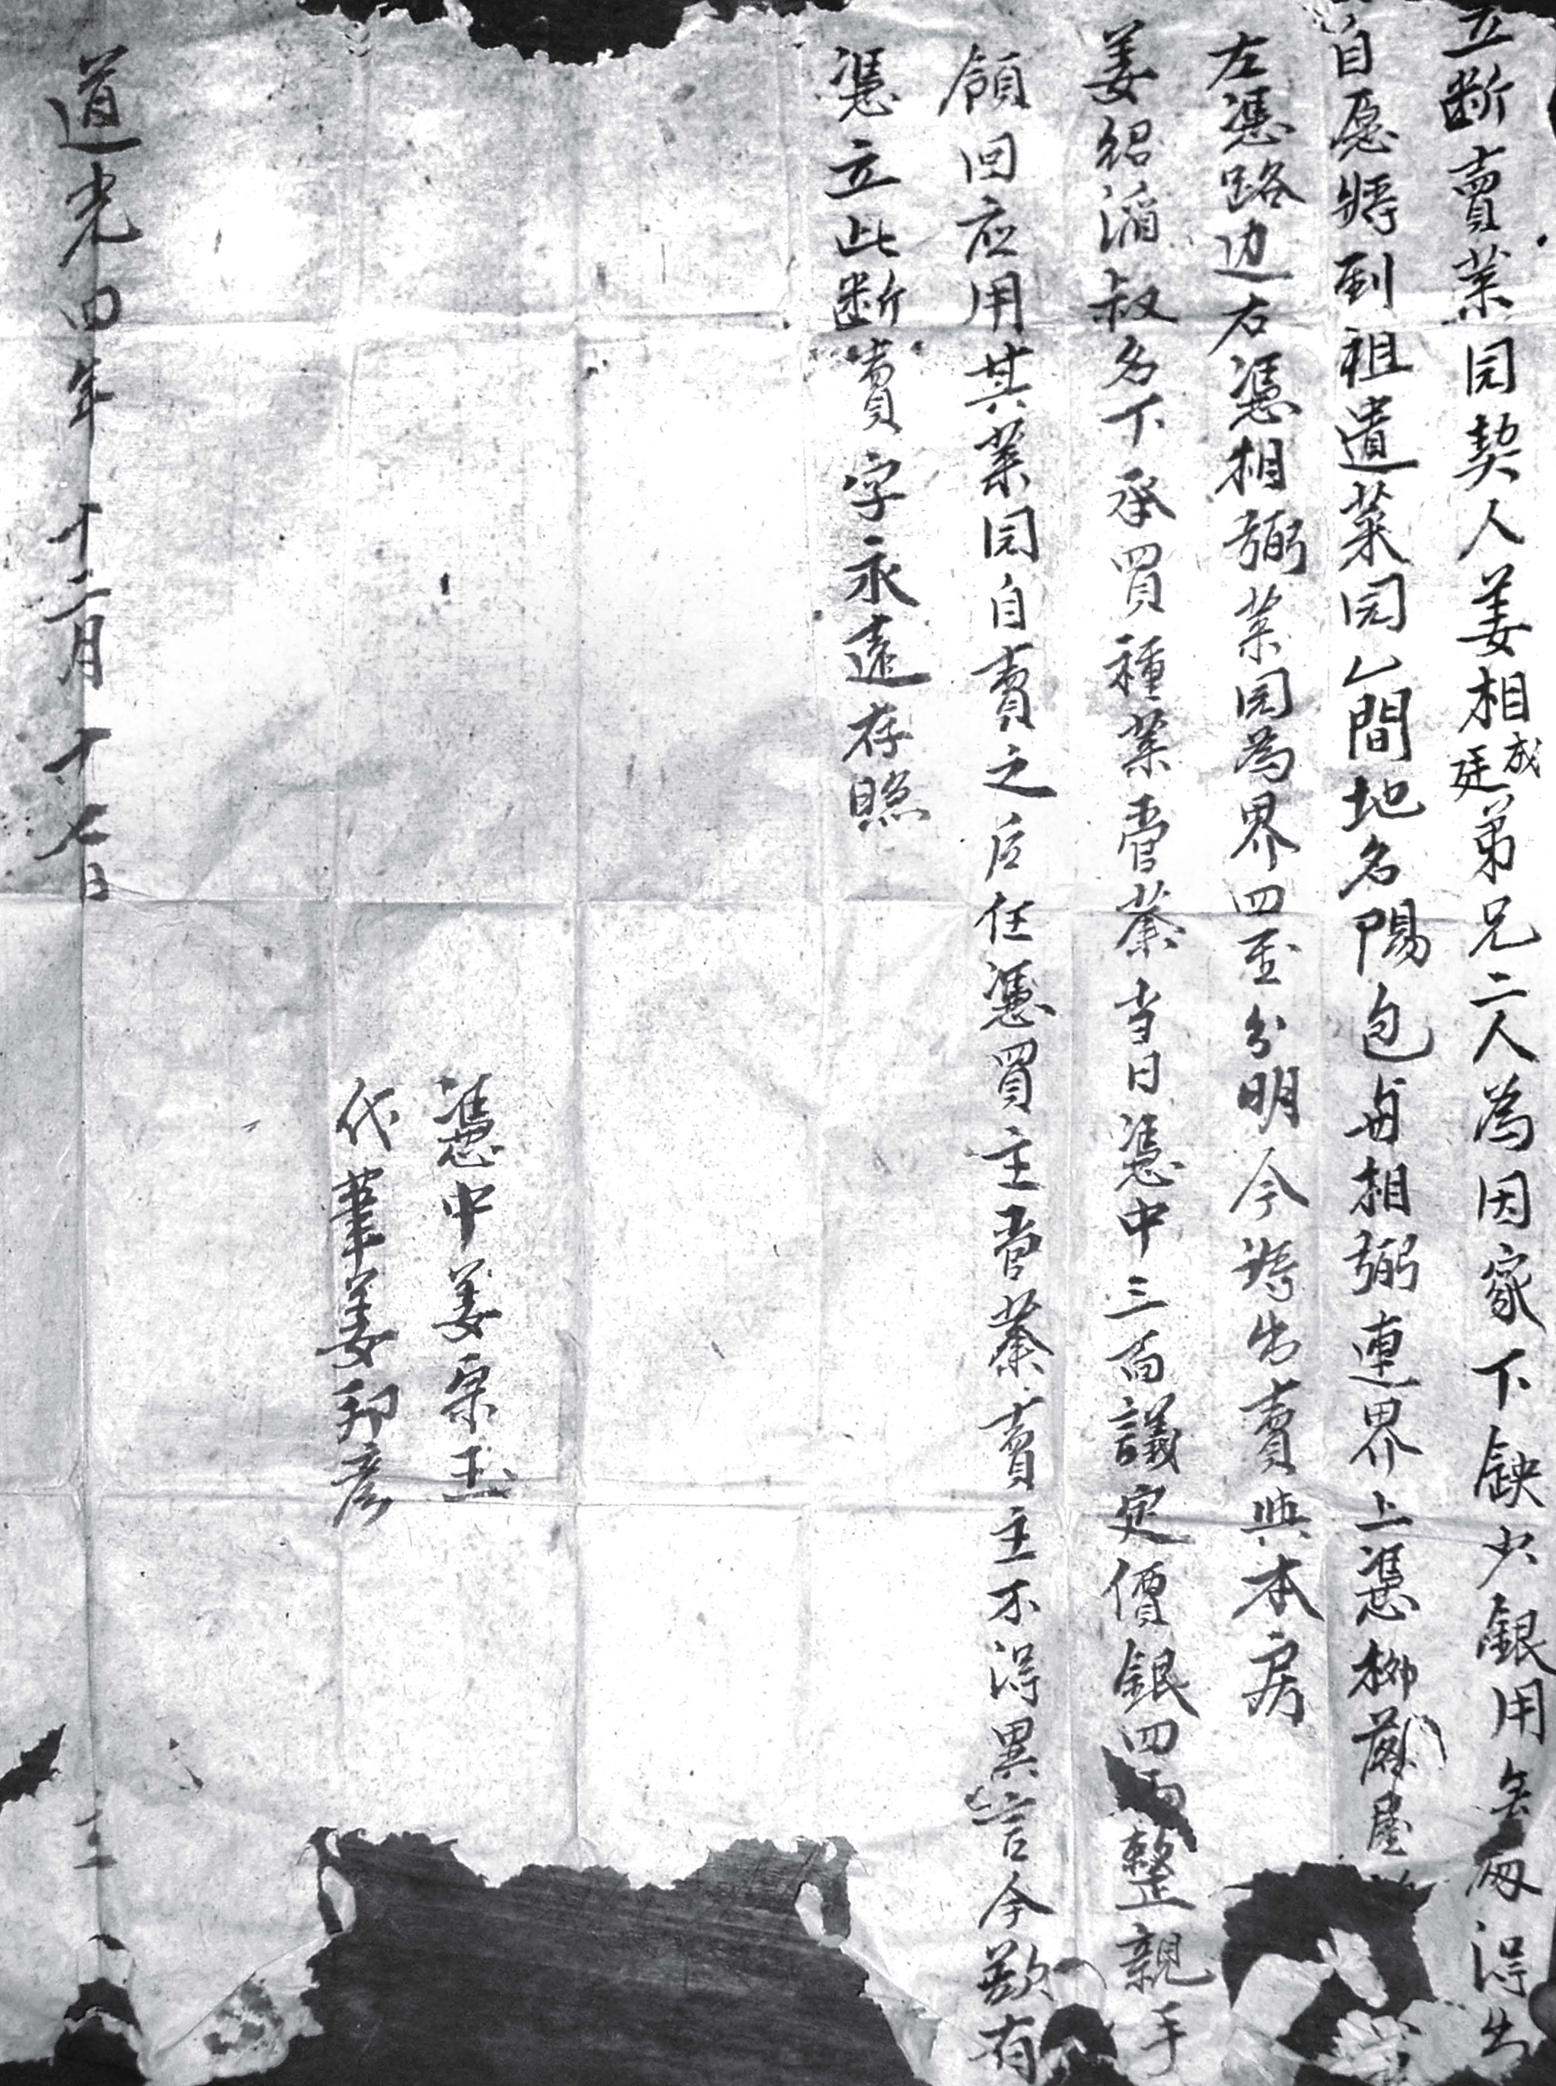 立断賣菜园契人姜相成廷弟兄二人為因家下缺少銀用無處得出
自愿將到祖遺菜园乙間地名陽包與相弼連界上憑柳嚴屋
左憑路边右憑相弼菜园為界四至分明今將出賣與本房
姜紹滔叔名下承買種菜管業当日憑中三面議定價銀四両整親手
領回应用其菜园自賣之后任憑買主管業賣主不得異言今欲有
憑立此断賣字永遠存照
憑中姜宗玉
代筆姜邦彦
道光四年十二月十七日